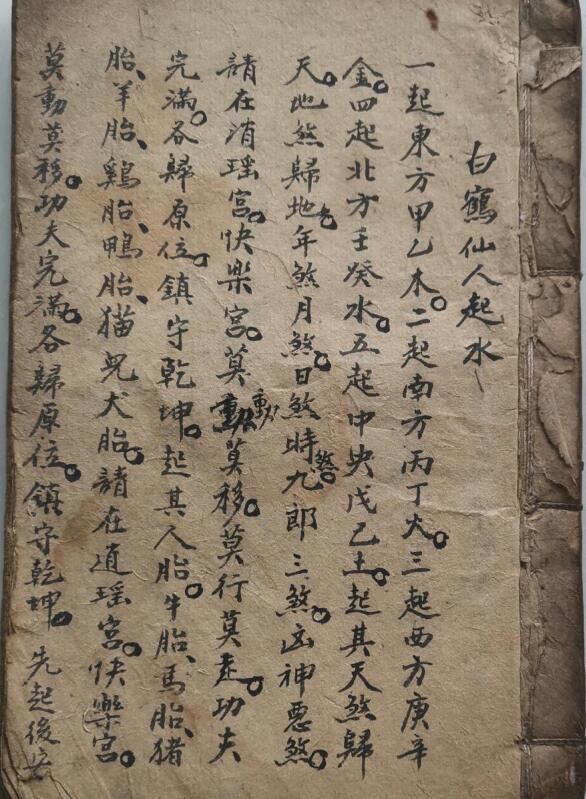 白鶴仙人起水
一起東方甲乙木。二起南方丙丁火。三起西方庚辛
金。四起北方壬癸水。五起中央戊己土。起其天煞歸
天。地煞歸地。年煞月煞。日煞時煞。九郎三煞。凶神惡煞。
請在消瑶宮。快樂宮。莫動莫移。莫行莫走。功夫
完滿。各歸原位。鎮守乾坤。起其人胎。牛胎、馬胎、猪
胎、羊胎、鷄胎、鴨胎、猫兒犬胎。請在逍瑶宮。快樂宮。
莫動莫移。功夫完滿。各歸原位。鎮守乾坤。先起後安